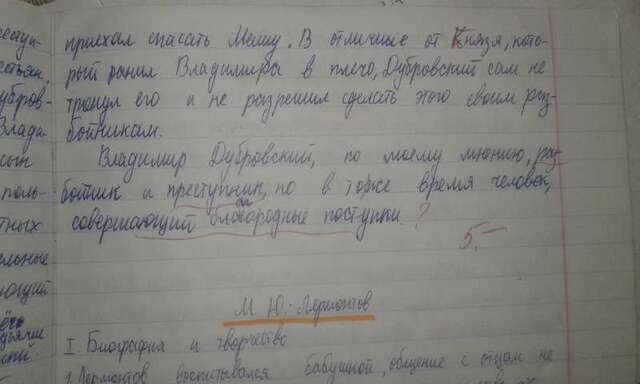 приехал спасать Машу. В отличие от Князя, кото-
рый ранил Владимира в плечо, Дубровский сам не
тронул его и не разрешил сделать этого своим раз-
бойникам.
Владимир Дубровский, по моему мнению, раз-
бойник и преступник, но в тоже время человек,
совершающий благородные поступки. ?
5-
М. Ю. Лермонтов
I Биография и творчество
1. Лермонтов воспитывался бабушкой, общение с отцом не